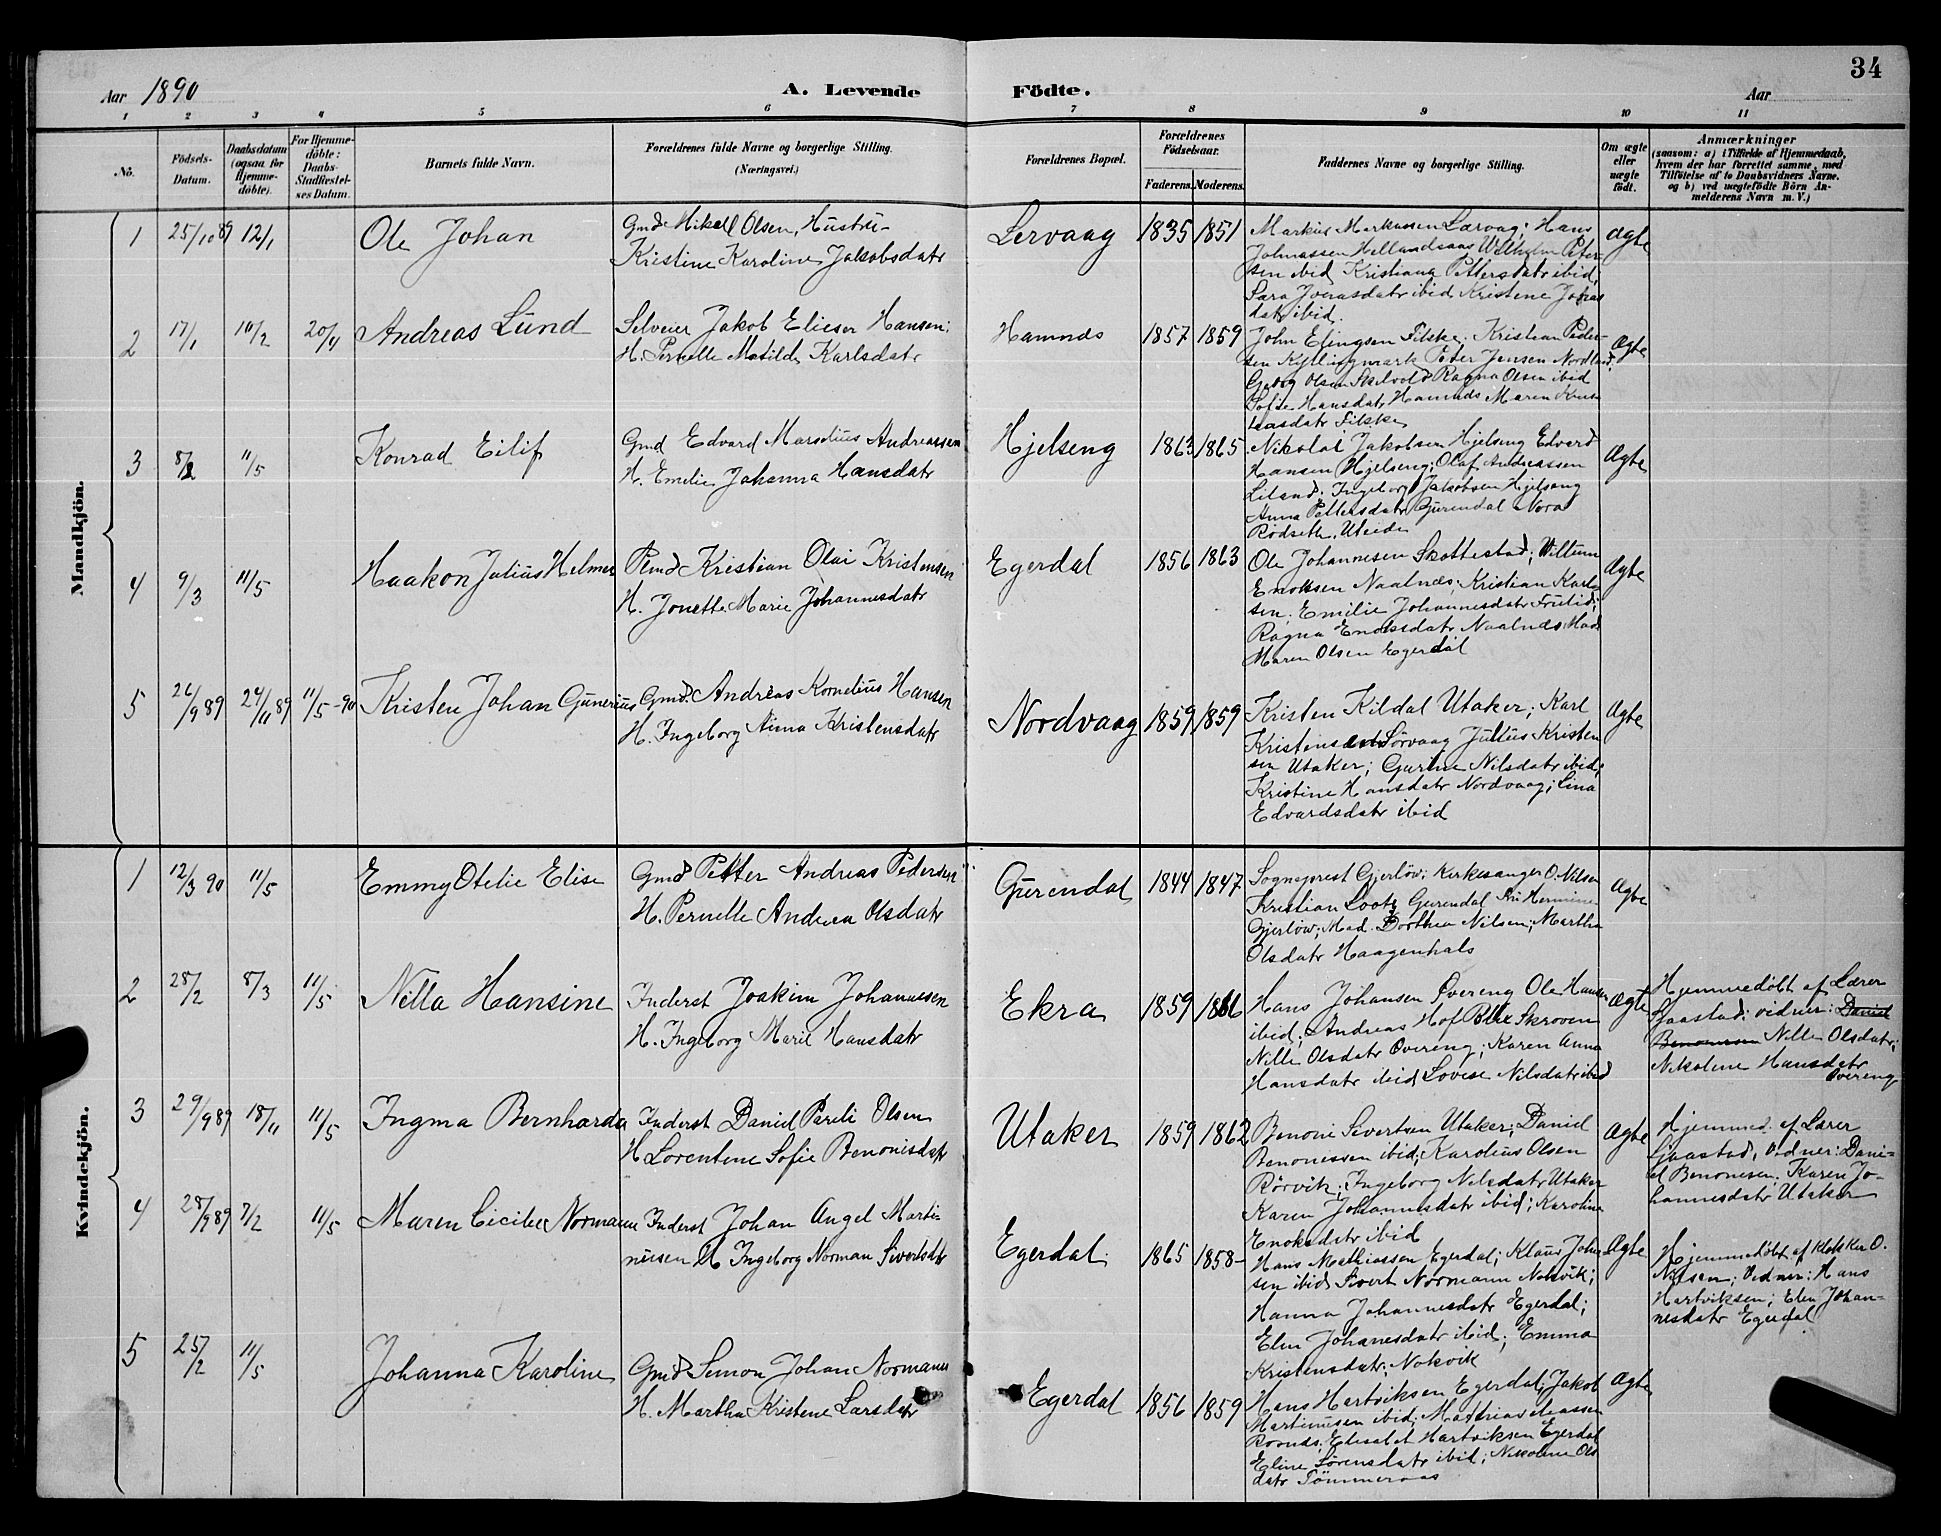 34
Aar 1890
A. Levende Födte.
Aar
1 2 3 4 5 6 7 8 9 10 11
No.
Födsels-
Datum.
Daabsdatum
(ogsaa for
Hjemme-
döbte).
For Hjemme-
döbte:
Daabs-
Stadfæstel-
ses Datum.
Barnets fulde Navn.
Forældrenes fulde Navne og borgerlige Stilling.
(Næringsvei.)
Forældrenes Bopæl.
Forældrenes
Födselsaar.
Faderens. Moderens.
Faddernes Navne og borgerlige Stilling.
Om ægte
eller
uægte
födt.
Anmærkninger
(saasom: a) i Tilfælde af Hjemmedaab,
hvem der har forrettet samme, med
Tilföielse af to Daabsvidners Navne.
og b) ved uægtefödte Börn An-
melderens Navn m. V.)
Mandkjön.
1 25/10 89 12/1
Ole Johan
Gmd Mikal Olsen, Hustru
Kristine Karoline Jakobsdatr
Lervaag
1835 1851
Markus Markussen Lærvaag; Hans
Johnassen Hellandsaas Wilhelm Peter-
sen ibid Kristiana Pettersdatr ibid,
Sara Jonasdatr ibid Kristene Jonas
datr ibid.
Ægte
2 17/1 10/2 20/4
Andreas Lund
Selveier Jakob Elieser Hansen;
H. Pernelle Matilde Karlsdatr
Hamnes
1857 1859
John Elingsen Filske; Kristian Peder-
sen Kyllingmark Peter Jensen Nordland.
Georg Olsen Skilvold Ragna Olsen ibid
Sofie Hansdatr Hamnes Maren
Filske
Ægte
3 8/2 11/5
Konrad Eilif
Gmd Edvard Marselius Andreassen
H. Emelie Johanna Hansdatr
Hjelseng
1863 1865
Nikolai Jakobsen Hjelseng Edvard
Hansen Hjelseng; Olaf Andreassen
Liland. Ingeborg Jakobsen Hjelseng
Anna Pettersdatr Gurendal Nora
Rødseth, Uleide
Ægte
4 9/3 11/5
Haakon Julius Helmer
Pemd Kristian Olai Kristensen
H. Jonette Marie Johannesdatr
Egerdal
1856 1863
Ole Johannesen Skottestad; Villum
Enoksen Naalnæs, Kristian Karl-
sen, Emilie Johannesdatr
Ragna Enoksdatr Naalnæs Mad
Maren Olsen Egerdal
Ægte
5 26/9 89 24/11 89 11/5 -90
Kristen Johan Gunerius
Gmd. Andreas Kornelius Hansen
H. Ingeborg Anna Kristensdatr
Nordvaag
1859 1859
Kristen Kildal Utaker; Karl
Kristensen Sørvaag Julius Kristen
sen Utaker; Gurine Nilsdatr ibid;
Kristine Hansdatr Nordvaag; Lina
Edvardsdatr ibid
Ægte
Kvindekjön.
1 12/3 90 11/5
Emmy Otelie Elise
Gmd Petter Andreas Pedersen
H. Pernelle Andrea Olsdatr
Gurendal
1844 1847
Sogneprest Gjerløv; Kirkesanger O. Nilsen
Kristian Loots Gurendal Fru Hermine
Gjerløw; Mad. Dorthea Nilsen; Martha
Olsdatr Haagenhals
Ægte
2 28/2 8/3 11/5
Nella Hansine
Inderst Joakim Johannesen
H. Ingeborg Marie Hansdatr
Ekra
1859 1866
Hans Johansen Overeng Ole Hansen
ibid; Andreas Hof Blix Skroven
Nille Olsdatr Overeng; Karen Anna
Hansdatr ibid Lovise Nilsdatr ibid
Ægte
Hjemmedøbt af Lærer
Sjaastad; vidner: Daniel
Benonisen Nille Olsdatr;
Nikoline Hansdatr
Overeng
3 29/9 89 18/11 11/5
Ingma Bernharda
Inderst Daniel Pareli Olsen
H Lorentene Sofie Benonisdatr
Utaker
1859 1862
Benoni Sivertsen Utaker; Daniel
Benonessen ibid; Karolius Olsen
Rørvik; Ingeborg Nelsdatr Utaker
Karen Johannesdatr ibid; Karoline
Enoksdatr ibid
Ægte
Hjemmed. af Lærer
Sjaastad, Vidner: Dani-
el Benonesen. Karen Jo-
hannesdatr Utaker
4 28/9 89 7/2 11/5
Maren Cicilie Normann
Inderst Johan Angel Marti-
nusen H Ingeborg Norman Sivertsdtr
Egerdal.
1865 1858-
Hans Mathiassen Egerdal; Klaus John
sen ibid Sivert Normann Nokvik;
Hanna Johannesdatr Egerdal;
Elen Johanesdatr ibid; Emma
Kristensdatr; Nokvik
Ægte
Hjemmedøbt af Klokker O.
Nilsen; Vidner: Hans
Hartviksen; Elen Johan-
nesdatr Egerdal
5 25/2 11/5
Johanna Karoline
Gmd Simon Johan Normann
H. Martha Kristene Larsdatr
Egerdal
1856 1859
Hans Hartviksen Egerdal; Jakob
Martinusen ibid;
Elisabet Hartviksen Egerdal
Eline Sørensdatr ibid; Nikoline Ols
datr Tömmeraas
Ægte